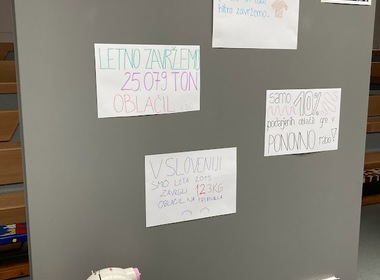 hitro zavržemo.
LETNO ZAVRŽEMO
25.079 TON
OBLAČIL
samo 10%
podarjenih oblačil gre v
PONOVNO rabo!
V SLOVENIJI
SMO LETA 2019
ZAVRGLI 12,3KG
OBLAČIL NA PREBIVALCA